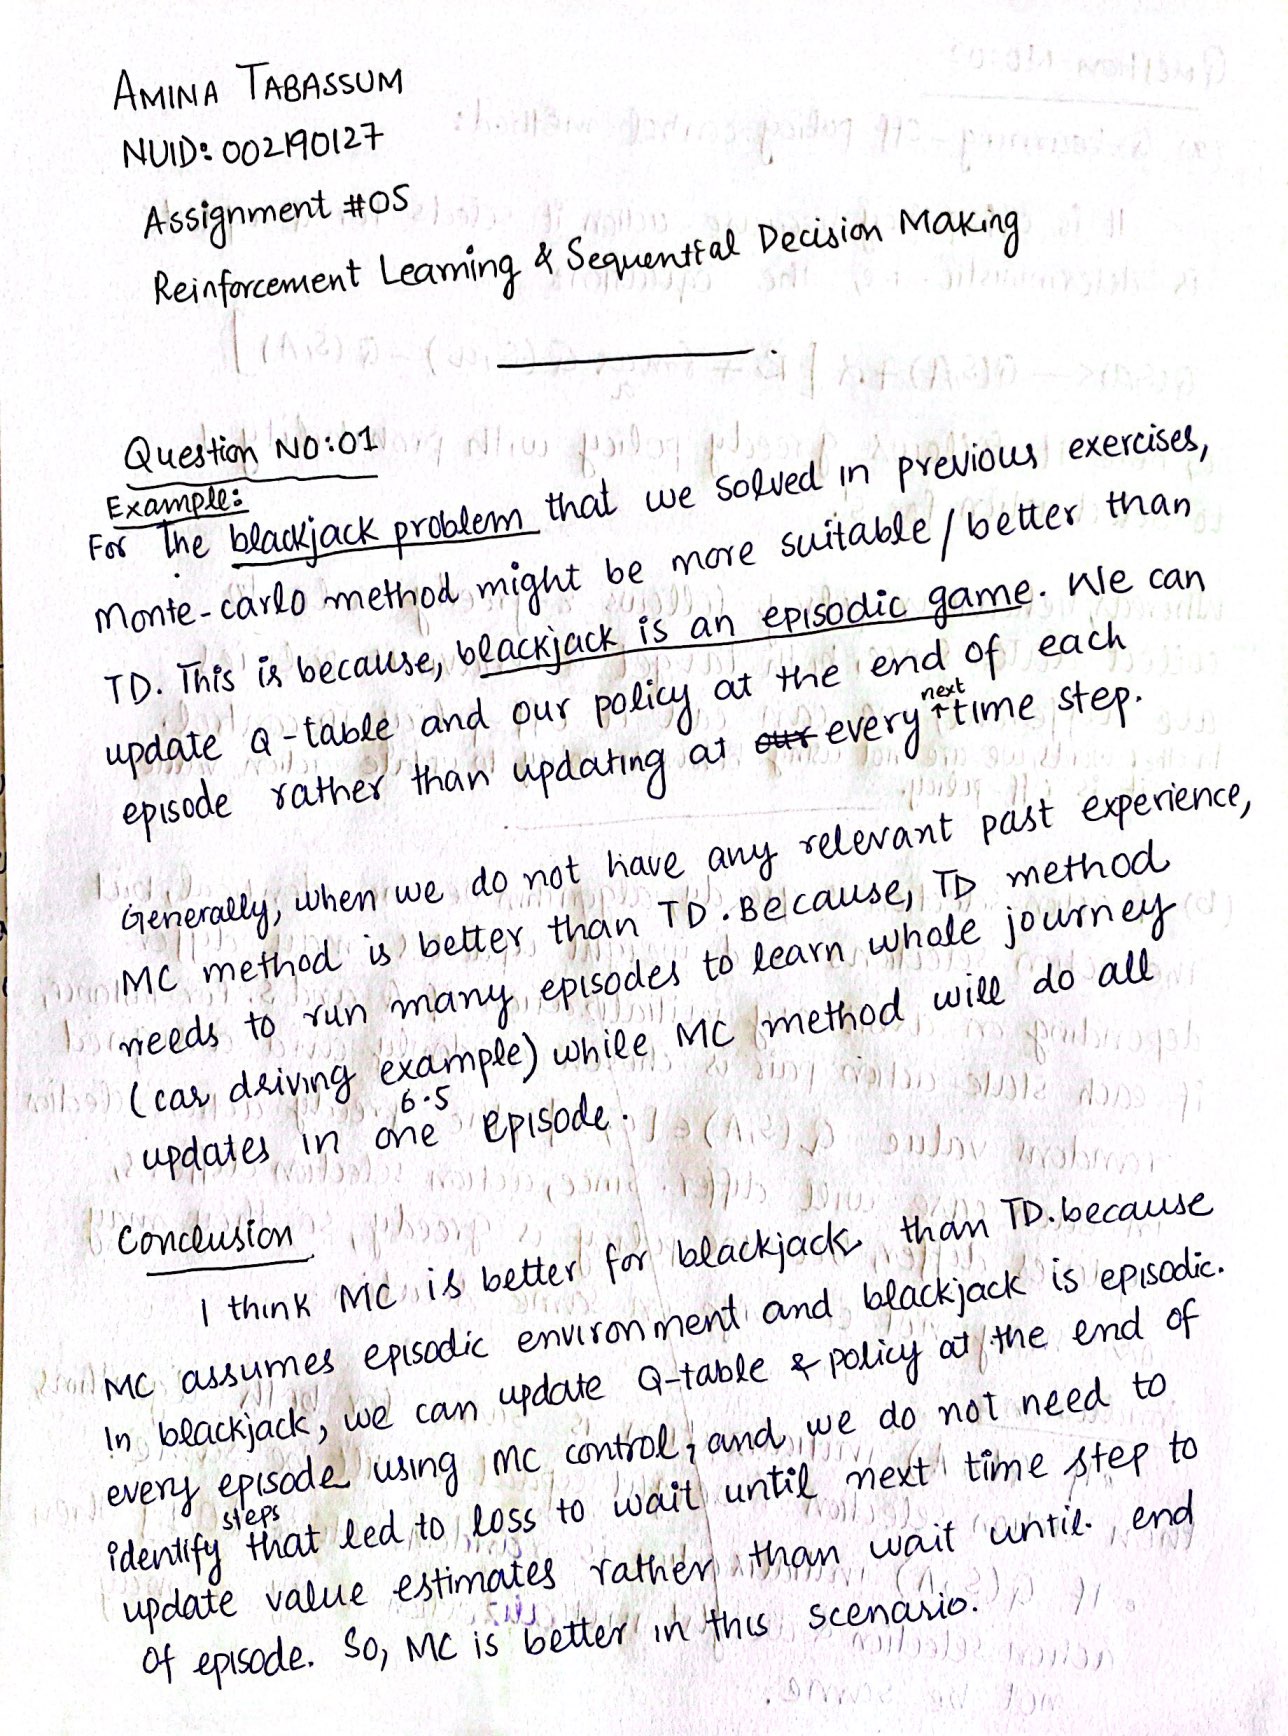 AMINA TABASSUM
NUID: 002190127
Assignment #05
Reinforcement Learning & Sequential Decision Making
Question NO:01
Example:
For The blackjack problem that we solved in previous exercises,
Monte-carlo method might be more suitable / better than
TD. This is because, blackjack is an episodic game. We can
update Q-table and our policy at the end of each
episode rather than updating at our every next time step.
Generally, when we do not have any relevant past experience,
MC method is better than TD. Because, TD method
needs to run many episodes to learn whole journey
(car driving example) while MC method will do all
6.5
updates in one episode.
Conclusion
I think MC is better for blackjack than TD. because
MC assumes episodic environment and blackjack is episodic.
In blackjack, we can update Q-table & policy at the end of
every episode using MC control, and we do not need to
identify steps that led to loss to wait until next time step to
update value estimates rather than wait until end
of episode. So, MC is better in this scenario.